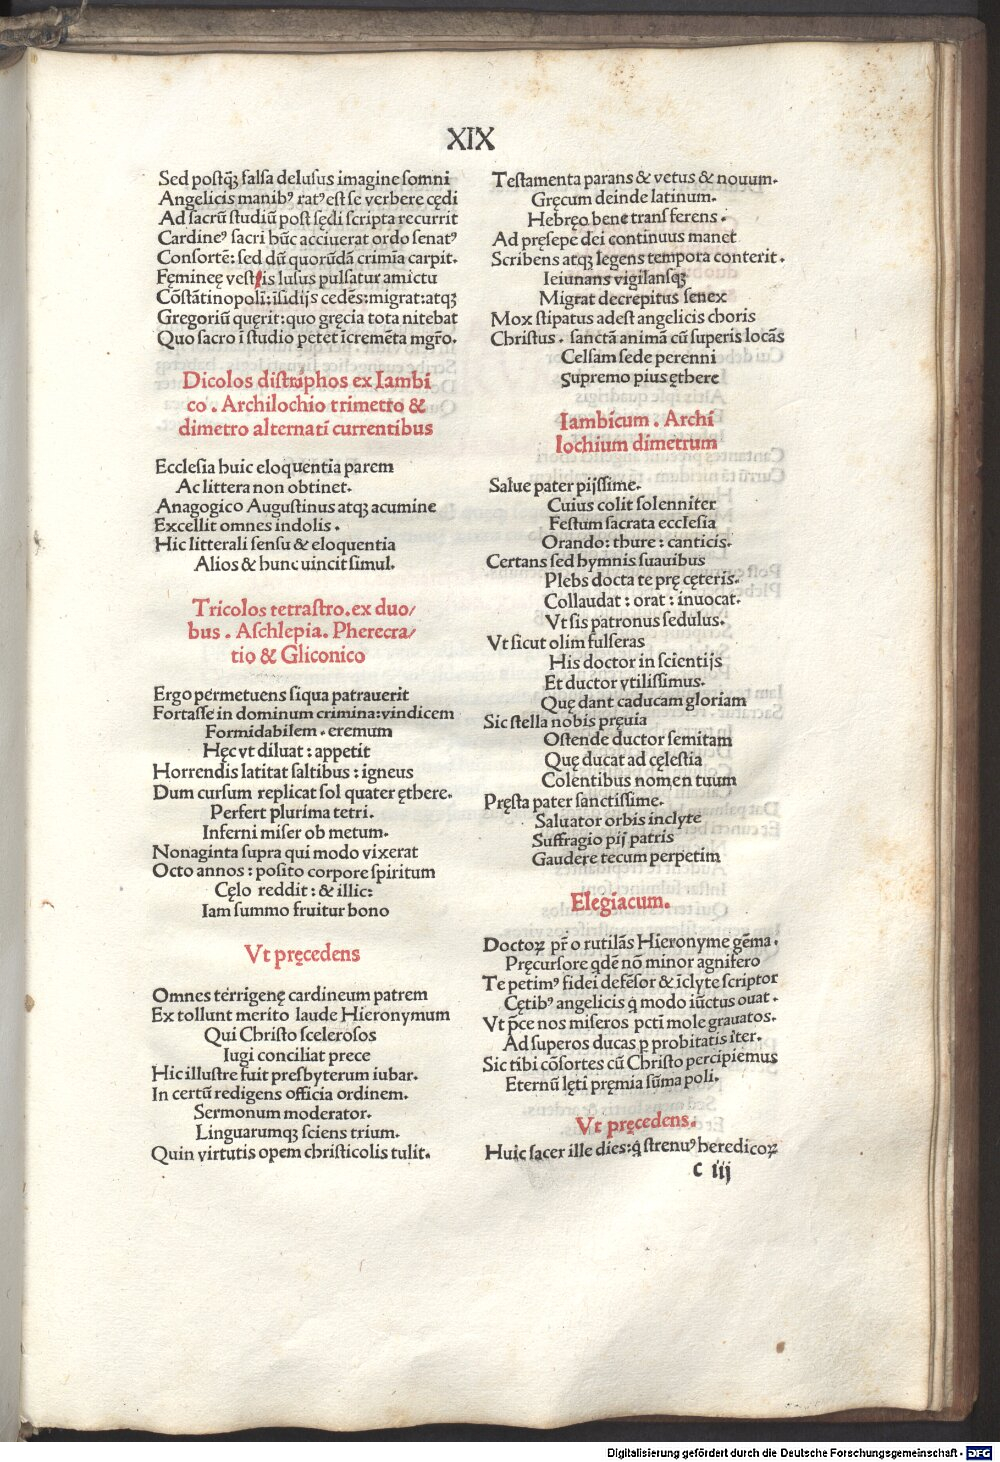 XIX
Sed postq̃ falsa delusus imagine somni
Angelicis manibꝰ ratꝰ est se verbere cędi
Ad sacrū studiū post sędi scripta recurrit
Cardineꝰ sacri hūc acciuerat ordo senatꝰ
Consortē: sed dū quorūdā crimīa carpit.
Fęmineę vestis lusus pulsatur amictu
Cōstātinopolī: isidijs cedēs: migrat: atqꝫ
Gregoriū quęrit: quo gręcia tota nitebat
Quo sacro ī studio petēt īcremēta mgr̄o.
Dicolos distrophos ex Iambi
co. Archilochio trimetro &
dimetro alternatī currentibus
Ecclesia huic eloquentia parem
Ac littera non obtinet.
Anagogico Augustinus atqꝫ acumine
Excellit omnes indolis.
Hic litterali sensu & eloquentia
Alios & hunc uincit simul.
Tricolos tetrastro. ex duo/
bus. Aschlepia. Pherecra/
tio & Gliconico
Ergo permetuens siqua patrauerit
Fortasse in dominum crimina: vindicem
Formidabilem. eremum
Hęc vt diluat: appetit
Horrendis latitat saltibus: igneus
Dum cursum replicat sol quater ęthere.
Perfert plurima tetri.
Inferni miser ob metum.
Nonaginta supra qui modo vixerat
Octo annos: posito corpore spiritum
Cęlo reddit: & illic:
Iam summo fruitur bono
Vt pręcedens
Omnes terrigenę cardineum patrem
Ex tollunt merito laude Hieronymum
Qui Christo scelerosos
Iugi conciliat prece
Hic illustre fuit presbyterum iubar.
In certū redigens officia ordinem.
Sermonum moderator.
Linguarumqꝫ sciens trium.
Quin virtutis opem christicolis tulit.
Testamenta parans & vetus & nouum.
Gręcum deinde latinum.
Hebręo bene transferens.
Ad pręsepe dei continuus manet
Scribens atqꝫ legens tempora conterit.
Ieiunans vigilansqꝫ
Migrat decrepitus senex
Mox stipatus adest angelicis choris
Christus. sanctā animā cū superis locās
Celsam sede perenni
Supremo pius ęthere
Iambicum. Archi
lochium dimetrum
Salue pater pijssime.
Cuius colit solenniter
Festum sacrata ecclesia
Orando: thure: canticis.
Certans sed hymnis suauibus
Plebs docta te prę cęteris.
Collaudat: orat: inuocat.
Vt sis patronus sedulus.
Vt sicut olim fulseras
His doctor in scientijs
Et ductor vtilissimus.
Quę dant caducam gloriam
Sic stella nobis pręuia
Ostende ductor semitam
Quę ducat ad cęlestia
Colentibus nomen tuum
Pręsta pater sanctissime.
Saluator orbis inclyte
Suffragio pij patris
Gaudere tecum perpetim
Elegiacum.
Doctoꝝ pr̄ o rutilās Hieronyme gēma.
Pręcursore qdē nō minor agnifero
Te petimꝰ fidei defēsor & īclyte scriptor
Cętibꝰ angelicis q̇ modo iūctus ouat.
Vt p̄ce nos miseros pctī mole grauatos.
Ad superos ducas ꝑ probitatis iter.
Sic tibi cōsortes cū Christo percipiemus
Eternū lęti pręmia sūma poli.
Vt pręcedens.
Huic sacer ille dies: q̇ strenuꝰ heredicoꝝ
c iij
Digitalisierung gefördert durch die Deutsche Forschungsgemeinschaft - DFG